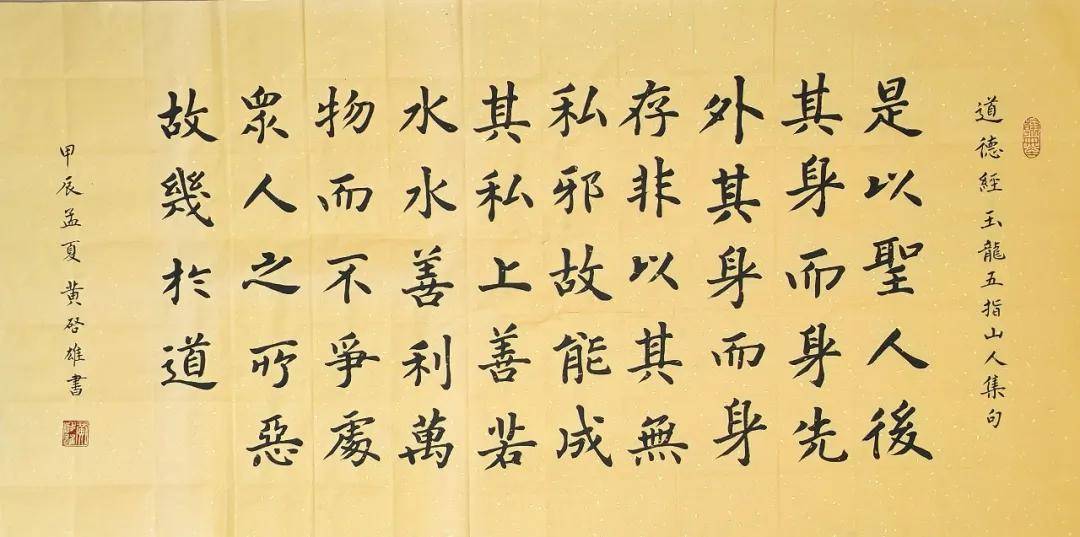 道德經玉龍五指山人集句
是以聖人後
其身而身先
外其身而身
存非以其無
私邪故能成
其私上善若
水水善利萬
物而不爭處
眾人之所惡
故幾於道
甲辰孟夏黄啓雄書